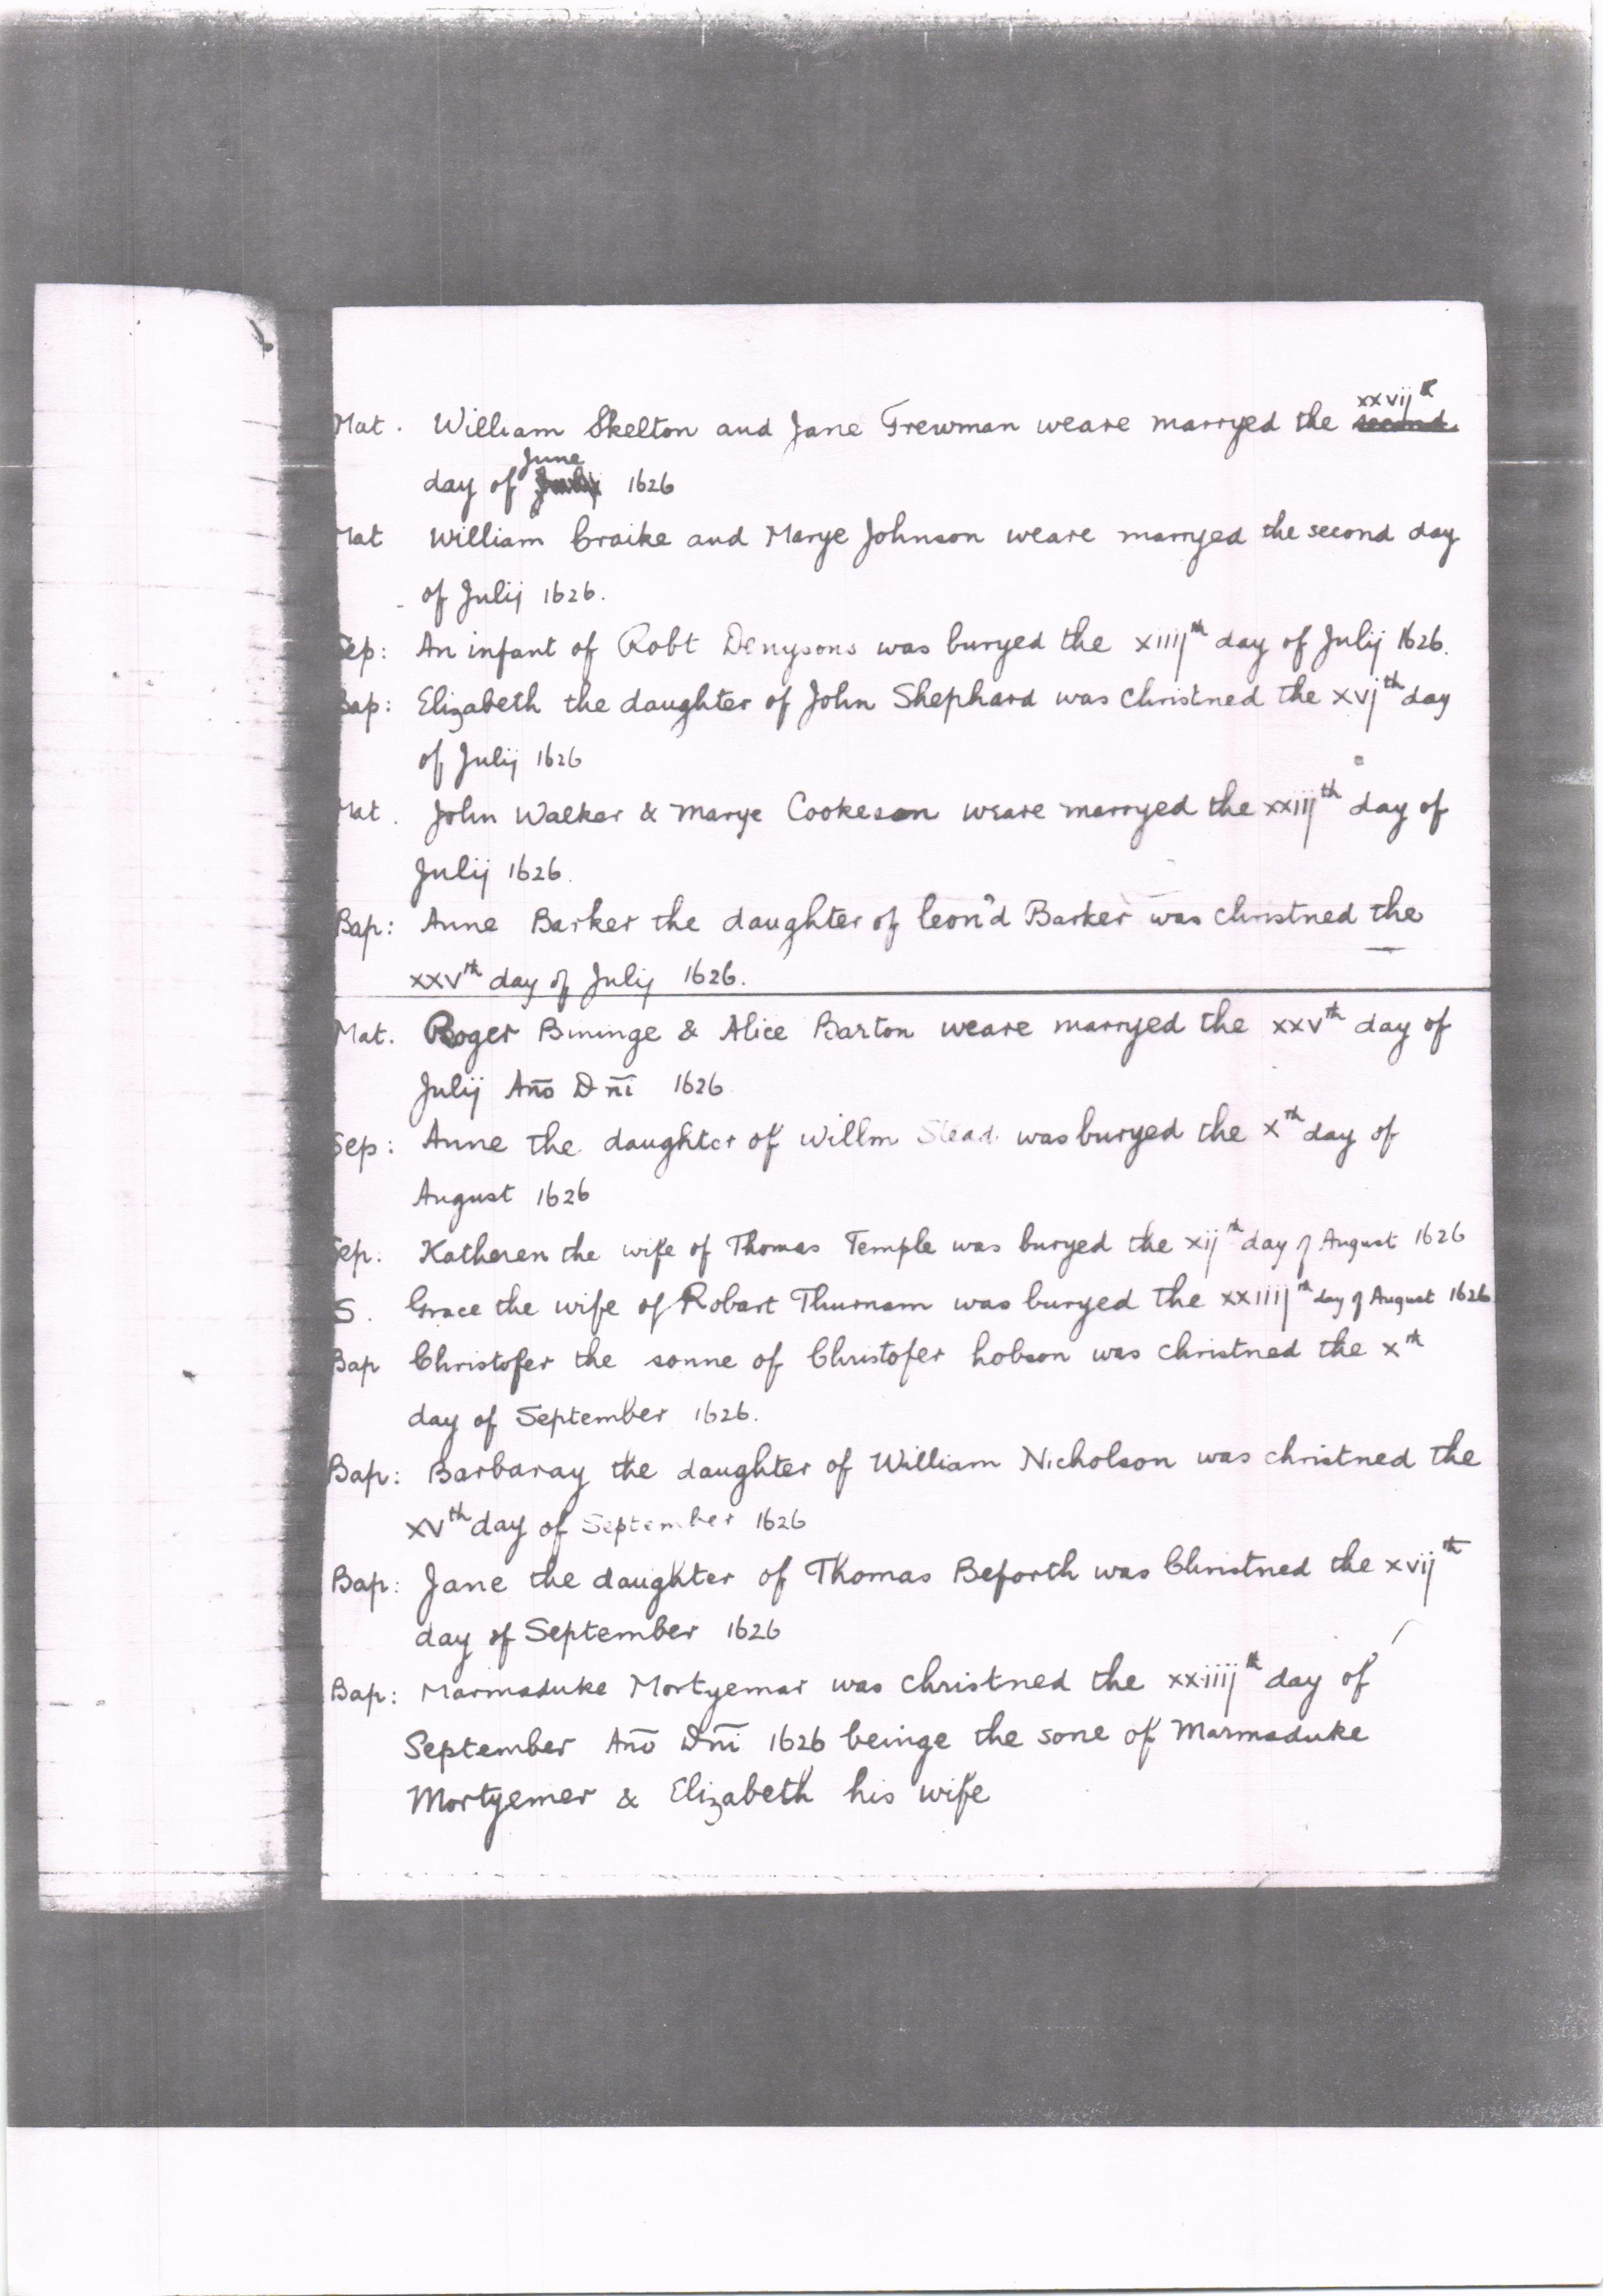 Mat. William Skelton and Jane Trewman weare marryed the xxvijth second
day of June July 1626
Mat William Craike and Marye Johnson weare marryed the second day
of Julij 1626.
Sep: An infant of Robt Denysons was buryed the xiiijth day of Julij 1626.
Bap: Elizabeth the daughter of John Shephard was christned the xvjth day
of Julij 1626
Mat. John Walker & Marye Cookeson weare marryed the xxiijth day of
Julij 1626.
Bap: Anne Barker the daughter of leon'd Barker was christned the
xxvth day of Julij 1626.
Mat. Roger Bininge & Alice Barton weare marryed the xxvth day of
Julij Año Dñi 1626
Sep: Anne the daughter of Willm Slead was buryed the xth day of
August 1626
Sep: Katheren the wife of Thomas Temple was buryed the xijth day of August 1626
S. Grace the wife of Robart Thurnam was buryed the xxiiijth day of August 1626
Bap Christofer the sonne of Christofer hobson was christned the xth
day of September 1626.
Bap: Barbaray the daughter of William Nicholson was christned the
xvth day of September 1626
Bap: Jane the daughter of Thomas Beforth was Christned the xvijth
day of September 1626
Bap: Marmaduke Mortyemar was christned the xxiiijth day of
September Año Dñi 1626 beinge the sone of Marmaduke
Mortyemer & Elizabeth his wife